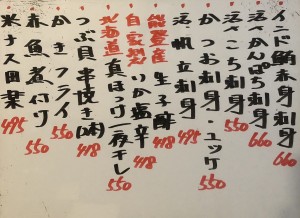 インド鮪赤身刺身 660
活かんぱち刺身 660
活こち刺身 550
かつお刺身・ユッケ 550
活帆立刺身 495
能登産生子酢 550
自家製いか塩辛 418
北海道真ほっけ一夜干し 550
つぶ貝串焼き 418
かきフライ 550
赤魚煮付 550
米ナス田楽 495